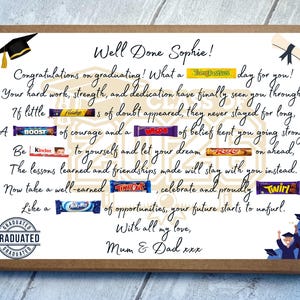 Well Done Sophie!
Congratulations on graduating! What a day for you!
Your hard work, strength, and dedication have finally seen you through
If little Fudge s of doubt appeared, they never stayed for long.
A BOOST of courage and a of belief kept you going stron
Be Kinder to yourself and let your dream ahead,
The lessons learned and friendships made will stay with you instead.
Now take a well-earned , celebrate and proudly Twirl
Like a of opportunities, your future starts to unfurl.
With all my love,
Mum & Dad xxx
GRADUATED
GRADUATED
GRADUATED